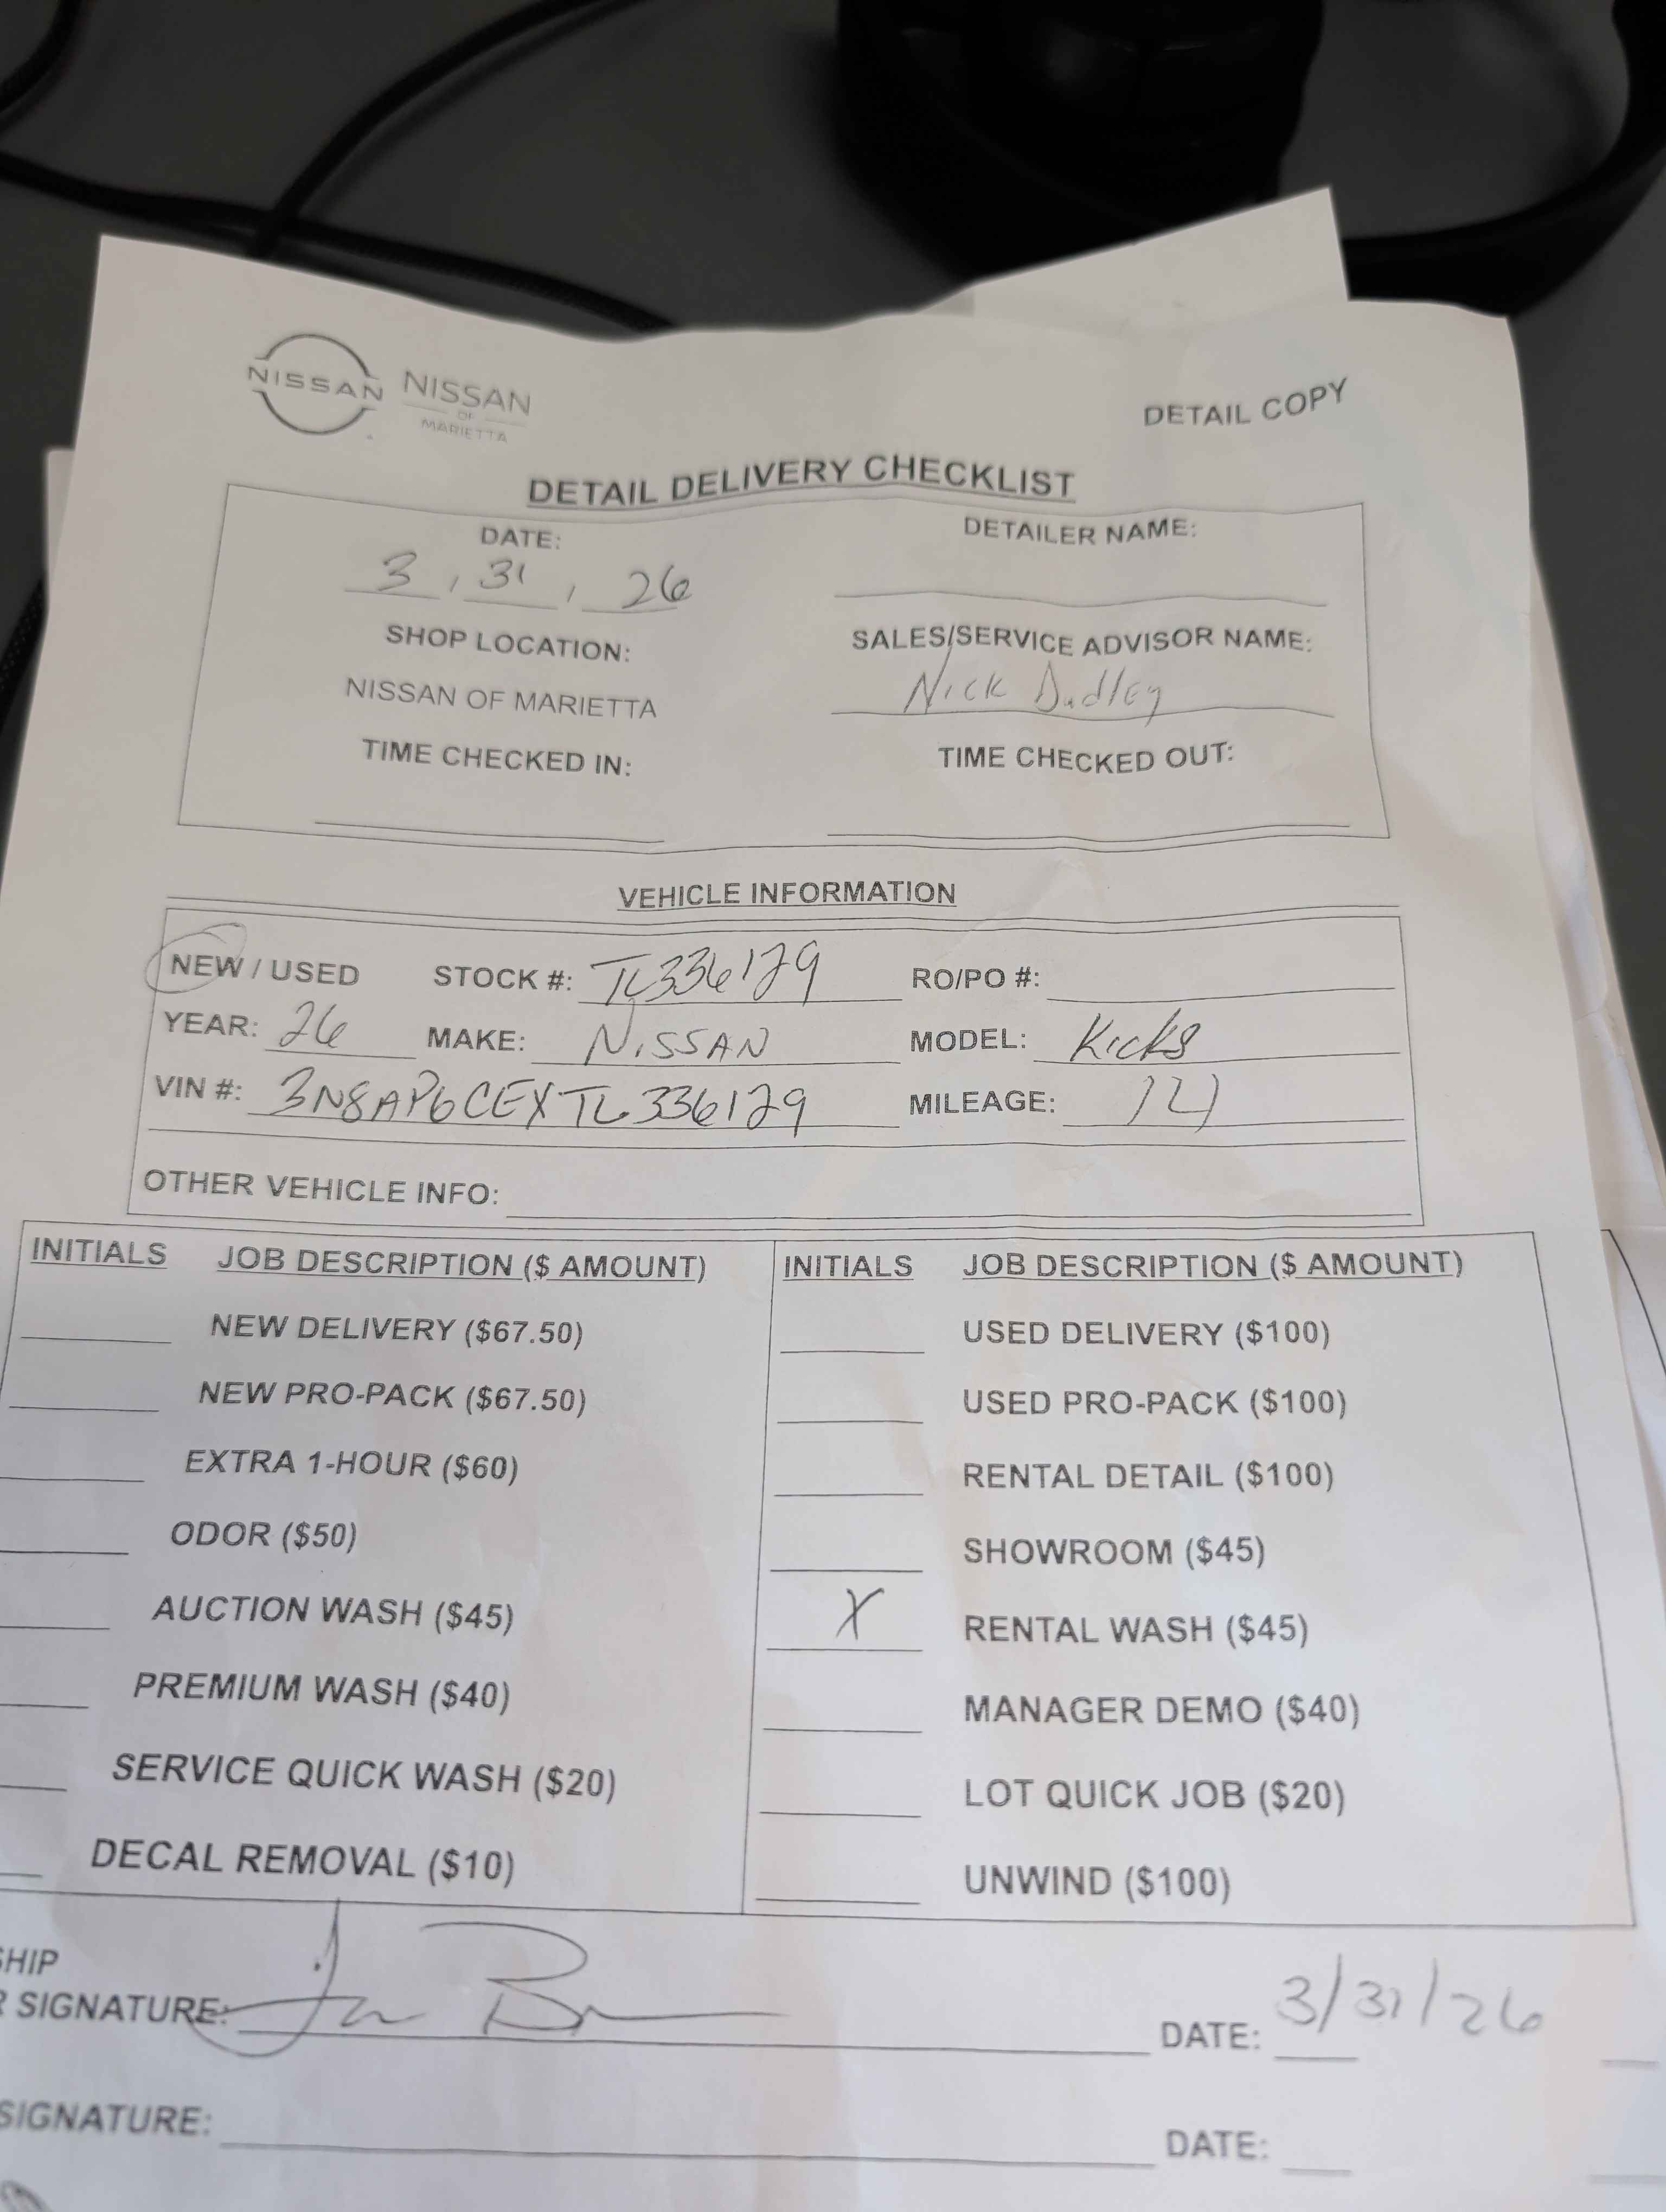 NISSAN NISSAN
OF
MARIETTA
DETAIL COPY
DETAIL DELIVERY CHECKLIST
DATE: DETAILER NAME:
3, 31, 26
SHOP LOCATION: SALES/SERVICE ADVISOR NAME:
NISSAN OF MARIETTA Nick Dudley
TIME CHECKED IN: TIME CHECKED OUT:
VEHICLE INFORMATION
NEW / USED STOCK #: TL336129 RO/PO #:
YEAR: 26 MAKE: NISSAN MODEL: Kicks
VIN #: 3N8AP6CEXTL336129 MILEAGE: 14
OTHER VEHICLE INFO:
INITIALS JOB DESCRIPTION ($ AMOUNT) INITIALS JOB DESCRIPTION ($ AMOUNT)
NEW DELIVERY ($67.50) USED DELIVERY ($100)
NEW PRO-PACK ($67.50) USED PRO-PACK ($100)
EXTRA 1-HOUR ($60) RENTAL DETAIL ($100)
ODOR ($50) SHOWROOM ($45)
AUCTION WASH ($45) X RENTAL WASH ($45)
PREMIUM WASH ($40) MANAGER DEMO ($40)
SERVICE QUICK WASH ($20) LOT QUICK JOB ($20)
DECAL REMOVAL ($10) UNWIND ($100)
SHIP
R SIGNATURE: DATE: 3/31/26
SIGNATURE: DATE: